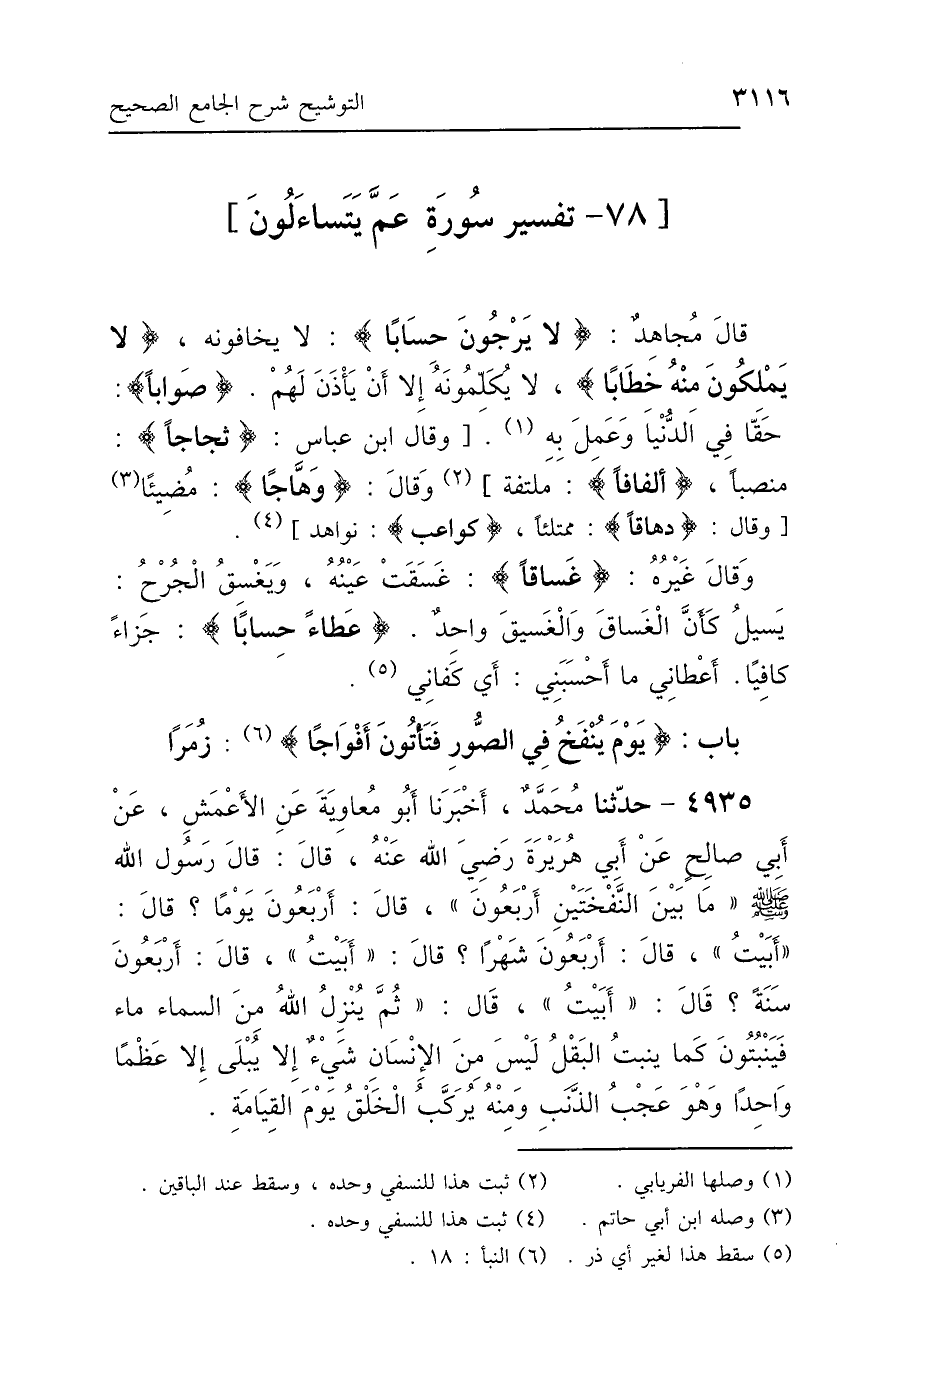 ٣١١٦ التوشيح شرح الجامع الصحيح
[ ٧٨- تفسير سُورَةِ عَمَّ يَتَساءَلُونَ ]
قالَ مُجاهدٌ : ﴿ لا يَرْجُونَ حسَابًا ﴾ : لا يخافونه ، ﴿ لا
يَمْلكُونَ منْهُ خطَابًا ﴾ ، لا يُكَلِّمُونَهُ إلا أنْ يَأْذَنَ لَهُمْ . ﴿ صَواباً﴾:
حَقّا فِي الدُّنْيا وَعَمِلَ بِهِ (١) . [ وقال ابن عباس : ﴿ ثجاجاً ﴾ :
منصباً ، ﴿ ألفافاً ﴾ : ملتفة ] (٢) وَقالَ : ﴿ وَهَّاجًا ﴾ : مُضِيئًا(٣)
[ وقال : ﴿ دهاقاً ﴾ : ممتلئاً ، ﴿ كواعب ﴾ : نواهد ] (٤) .
وَقالَ غَيْرُهُ : ﴿ غَساقاً ﴾ : غَسَقَتْ عَيْنُهُ ، وَيَغْسِقُ الْجُرْحُ :
يَسيلُ كَأنَّ الْغَساقَ وَالْغَسيقَ واحِدٌ . ﴿ عَطاءً حِسابًا ﴾ : جَزاءً
كافِيًا. أعْطانِي ما أحْسَبَنِي : أي كَفانِي (٥) .
باب : ﴿ يَوْمَ يُنْفَخُ فِي الصُّورِ فَتَأْتُونَ أفْوَاجًا ﴾ (٦) : زُمَرًا
٤٩٣٥ - حدّثنا مُحَمَّدٌ ، أخْبَرَنَا أبُو مُعاوِيَةَ عَنِ الأعْمَشِ ، عَنْ
أبِي صالِحٍ عَنْ أبِي هُرَيْرَةَ رَضِيَ الله عَنْهُ ، قالَ : قالَ رَسُول الله
ﷺ « مَا بَيْنَ النَّفْخَتَيْنِ أرْبَعُونَ » ، قالَ : أرْبَعُونَ يَوْمًا ؟ قالَ :
«أبَيْتُ » ، قالَ : أرْبَعُونَ شَهْرًا ؟ قالَ : « أبَيْتُ » ، قالَ : أرْبَعُونَ
سَنَةً ؟ قَالَ : « أبَيْتُ » ، قَال : « ثُمَّ يُنْزِلُ اللهُ مِنَ السماءِ ماء
فَيَنْبُتُونَ كَما ينبتُ البَقْلُ لَيْسَ مِنَ الإنْسَانِ شَيْءٌ إلا يُبْلَى إلا عَظْمًا
وَاحِدًا وَهْوَ عَجْبُ الذَّنَبِ وَمِنْهُ يُرَكَّبُ الْخَلْقُ يَوْمَ القِيَامَةِ .
(١) وصلها الفريابي . (٢) ثبت هذا للنسفي وحده ، وسقط عند الباقين .
(٣) وصله ابن أبي حاتم . (٤) ثبت هذا للنسفي وحده .
(٥) سقط هذا لغير أي ذر . (٦) النبأ : ١٨ .